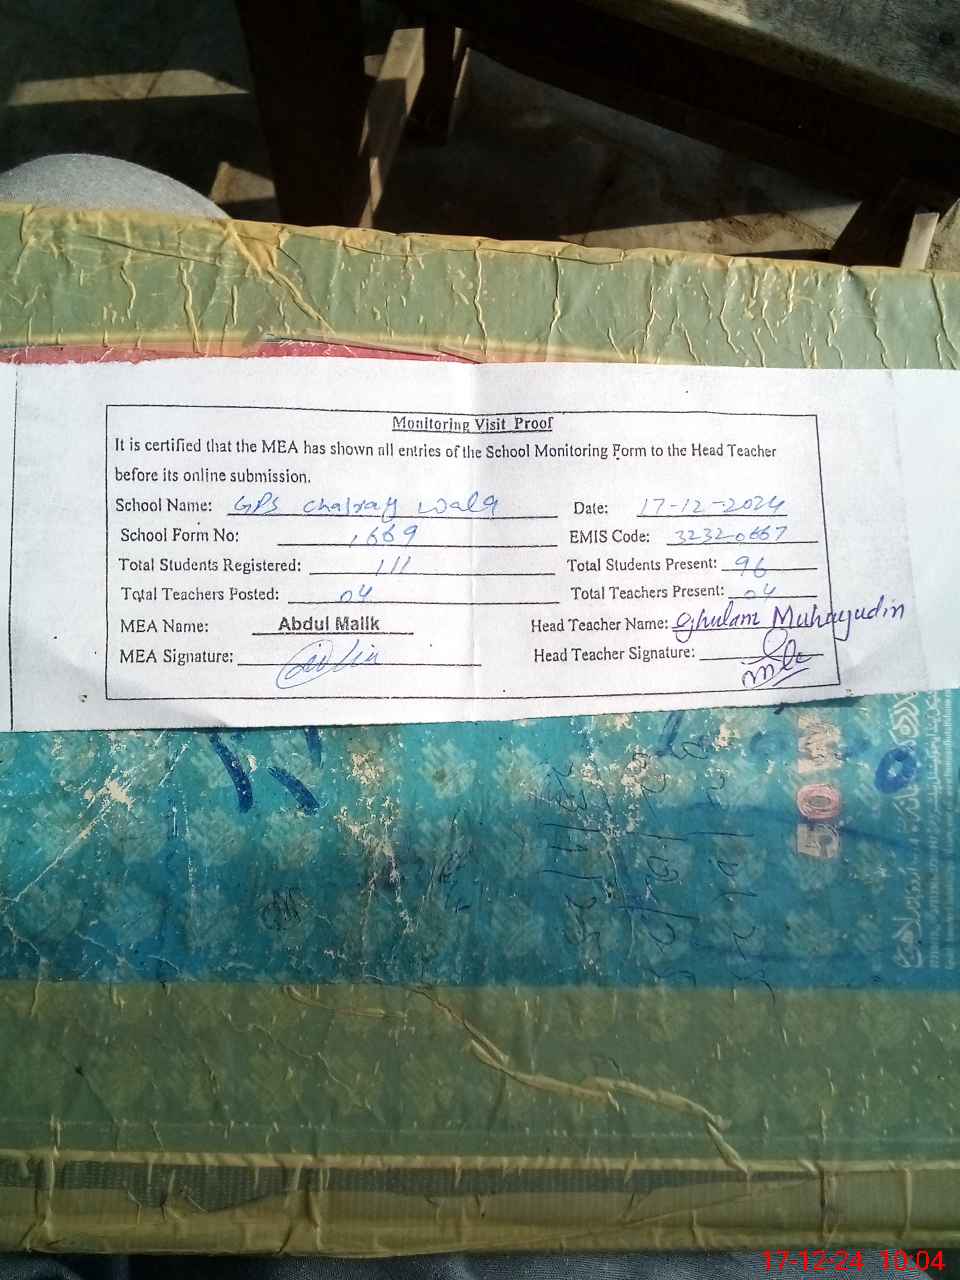 Monitoring Visit Proof
It is certified that the MEA has shown all entries of the School Monitoring Form to the Head Teacher
before its online submission.
School Name: GPS Chahray wala Date: 17-12-2024
School Form No: 1669 EMIS Code: 32320667
Total Students Registered: 111 Total Students Present: 96
Total Teachers Posted: 04 Total Teachers Present: 04
MEA Name: Abdul Malik Head Teacher Name: Ghulam Muhayudin
MEA Signature: Head Teacher Signature:
50
17-12-24 10:04